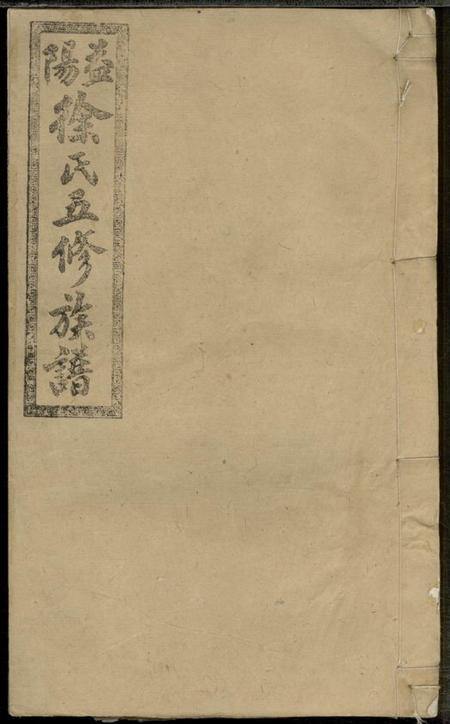 益陽
徐氏五修族譜